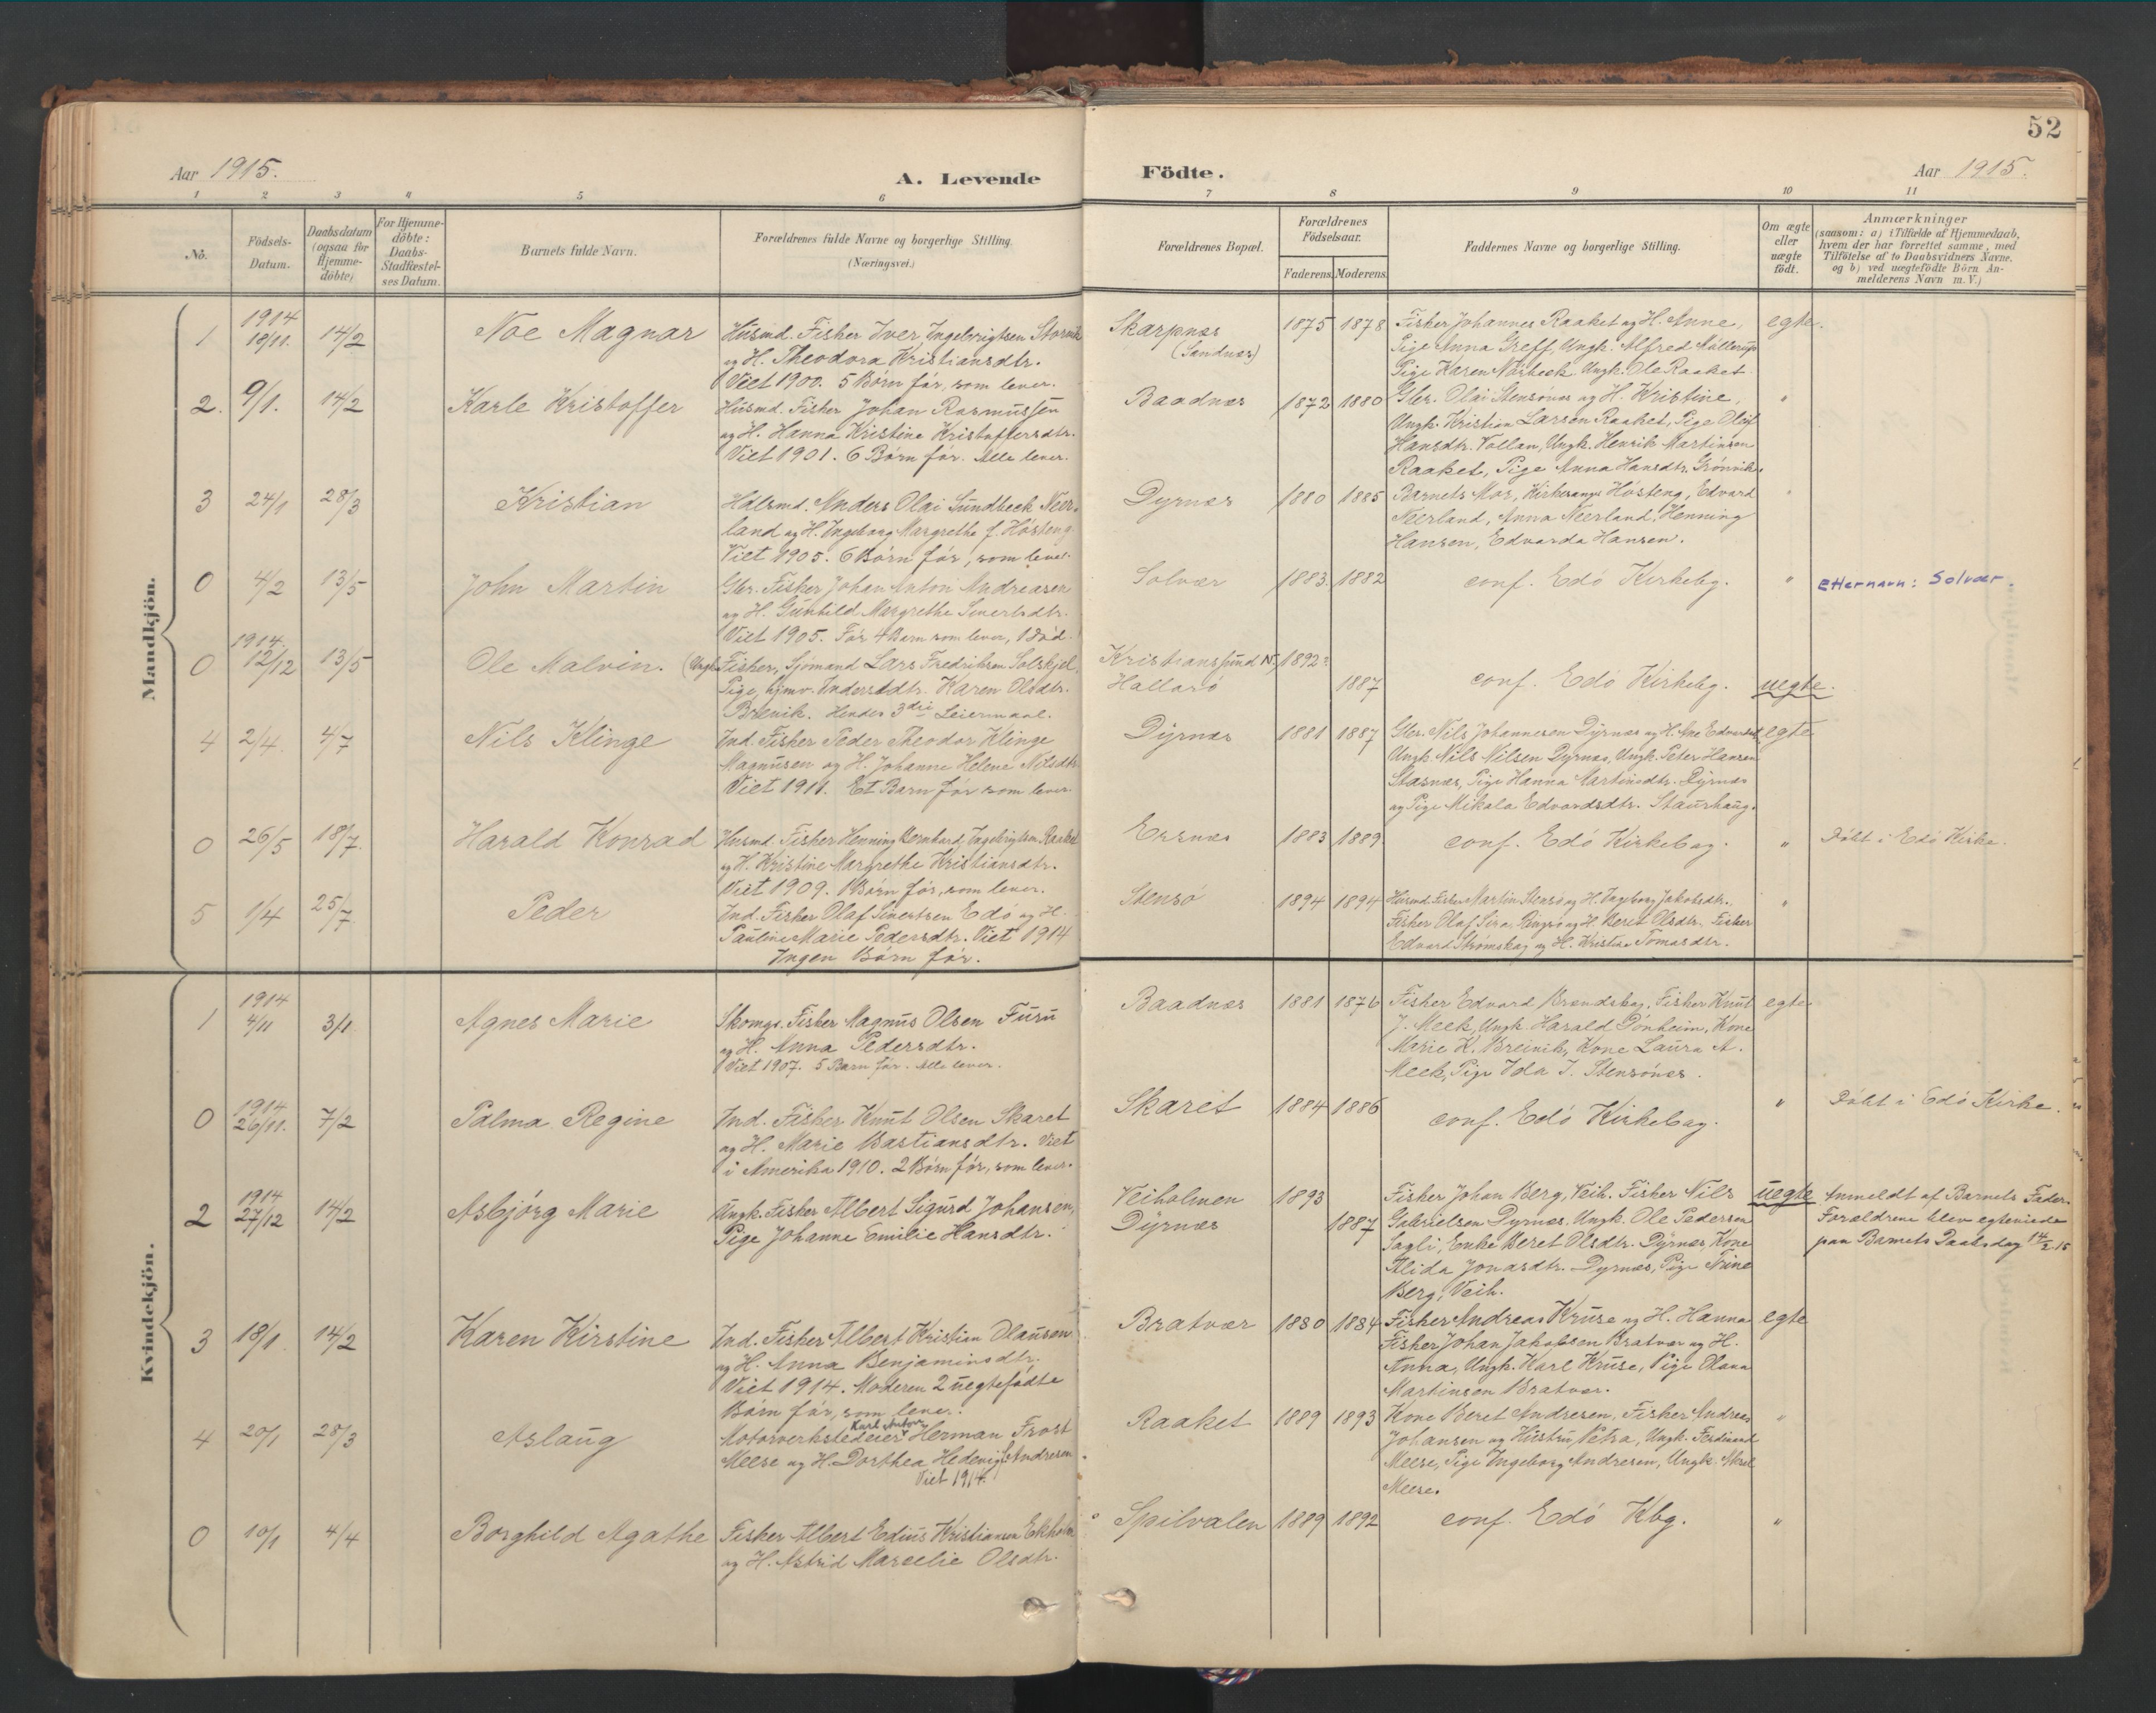 52
Aar 1915.
A. Levende Födte.
Aar 1915.
1 2 3 4 5 6 7 8 9 10 11
No.
Födsels-
Datum.
Daabsdatum
(ogsaa for
Hjemme-
döbte)
For Hjemme-
döbte:
Daabs-
Stadfæstel-
ses Datum.
Barnets fulde Navn.
Forældrenes fulde Navne og borgerlige Stilling.
(Næringsvei.)
Forældrenes Bopæl.
Forældrenes
Födselsaar.
Faderens. Moderens.
Faddernes Navne og borgerlige Stilling.
Om ægte
eller
uægte
födt.
Anmærkninger
(saasom: a) i Tilfælde af Hjemmedaab,
hvem der har forrettet samme, med
Tilföielse af to Daabsvidners Navne.
og b) ved uægtefödte Börn An-
melderens Navn m. V.)
Mandkjön.
1
1914
18/11.
14/2
Noe Magnar
Husmd. Fisker Iver Ingebrigtsen Storvik
og H. Theodora Kristiansdtr.
Viet 1900. 5 Börn för, som lever.
Skarpnes
(Sandnes)
1875 1878
Fisker Johannes Raaket og H. Anne,
Pige Anna Greff, Ungk. Alfred Möllerup
Pige Karen Nörbeck, Ungk. Ole Raaket
egte.
2. 9/1. 14/2
Karle Kristoffer
Husmd. Fisker Johan Rasmussen
og H. Hanna Kristine Kristoffersdtr.
Viet 1901. 6 Börn för. Alle lever.
Baadnes
1872 1880
Gbr. Olai Stensönes og H. Kristine,
Ungk. Kristian Larsen Raaket, Pige Olöf
Hansdtr. Vollan, Ungk. Henrik Martinsen
Raaket, Pige Anna Hansdtr. Grönvik.
"
3 24/1 28/3
Kristian
Hdlsmd. Anders Olai Sundbeck Neer-
land og H. Ingeborg Margrethe f. Hösteng
Viet 1905. 6 Börn för, som lever.
Dyrnes
1880 1885
Barnets Mor, Kirkesanger Hösteng, Edvard
Neerland, Anna Neerland, Henning
Hansen, Edvarda Hansen.
"
0 4/2 13/5
John Martin
Gbr. Fisker Johan Anton Andreasen
og H. Gunhild Margrethe Sivertsdtr.
Viet 1905. För 4 Barn som lever, 1 död.
Solvær
1883. 1882
conf. Edö Kirkebg.
"
Etternavn: Solvær.
0
1914
12/12
13/5
Ole Malvin.
(Ungk. Fisker, Sjömand Lars Fredriksen Solskjel,
Pige, hjmv. Indersdtr. Karen Olsdtr.
Brevik. Hendes 3die Leiermaal.
Kristianssund N.
Hallarö
1892
1887
conf. Edö Kirkebg.
uegte.
4 2/4. 4/7
Nils Klinge
Ind. Fisker Peder Theodor Klinge
Magnusen og H. Johanne Helene Nilsdtr.
Viet 1911. Et Barn för som lever.
Dyrnes
1881 1887
Gbr. Nils Johannesen Dyrnes og H. Ane Edvardsd.
Ungk. Nils Nilsen Dyrnes, Ungk. Peter Hansen
Stasnes, Pige Hanna Martinsdtr. Dyrnes
og Pige Mikala Edvardsdtr. Staurhaug.
egte
0 26/5 18/7.
Harald Konrad
Husmd. Fisker Henning Bernhard Ingebrigtsen Raaket
og H. Kristine Margrethe Kristiansdtr.
Viet 1909. 1 Börn för, som lever.
Ersnes
1883 1889
conf. Edö Kirkebog.
"
Döbt i Edö Kirke.
5 1/4 25/7.
Peder
Ind. Fisker Olaf Sivertsen Edö og H.
Pauline Marie Pedersdtr. Viet 1914
Ingen Börn för.
Stensö
1894 1894
Husmd. Fisker Martin Stensö og H. Ingeborg Jakobsdtr.
Fisker Olaf Ringsö og H. Beret Olsdtr. Fisker
Edvard Strömskag og H. Kristine Tomasdtr.
"
Kvindekjön.
1
1914
4/11
3/1.
Agnes Marie
Skomgr. Fisker Magnus Olsen Furu
og H. Anna Pedersdtr.
Viet 1907. 5 Barn för. Alle lever.
Baadnes
1881 1876
Fisker Edvard Brandskag, Fisker Knut
J. Meek, Ungk. Harald Dönheim, Kone
Marie K. Breivik, Kone Laura A.
Meek, Pige Ida I. Stensönes.
egte
0
1914
26/11.
7/2
Palma Regine
Ind. Fisker Knut Olsen Skaret
og H. Marie Bastiansdtr. Viet
i Amerika 1910. 2 Börn för, som lever.
Skaret
1884 1886
conf. Edö Kirkebog.
"
Döbt i Edö Kirke.
2
1914
27/12
14/2
Asbjörg Marie
Ungk. Fisker Albert Sigurd Johansen,
Pige Johanne Emilie Hansdtr.
Veiholmen
Dyrnes
1893
1887
Fisker Johan Berg, Veih. Fisker Nils
Gabrielsen Dyrnes, Ungk. Ole Pedersen
Sagli, Enke Beret Olsdtr. Dyrnes, Kone
Alida Jonasdtr. Dyrnes, Pige Trine
Berg, Veih.
uegte
Anmeldt af Barnets Fader.
Forældrene blev egteviede
paa Barnets Daabsdag 14/2 15
3 18/1. 14/2
Karen Kirstine
Ind. Fisker Albert Kristian Olausen
og H. Anna Benjaminsdtr.
Viet 1914. Moderen 2 uegtefödte
Börn för, som lever.
Bratvær
1880 1884
Fisker Andreas Kruse og H. Hanna
Fisker Johan Jakobsen Bratvær og H.
Anna, Ungk. Karl Kruse, Pige Olava
Martinsen Bratvær.
egte
4 20/1 28/3
Aslaug
Motorverkstedeier Karl Anton Herman Frost
Meese og H. Dorthea Hedevig Andresen
Viet 1914.
Raaket
1889 1893
Kone Beret Andresen, Fisker Andreas
Johansen og Hustru Petra, Ungk. Ferdinand
Meese, Pige Ingeborg Andresen, Ungk. Aksel
Meese.
"
0 10/1 4/4
Borghild Agathe
Fisker Albert Edius Kristiansen Ekholm
og H. Astrid Marcelie Olsdtr.
Spilvalen
1889 1892
conf. Edö Kbg.
"